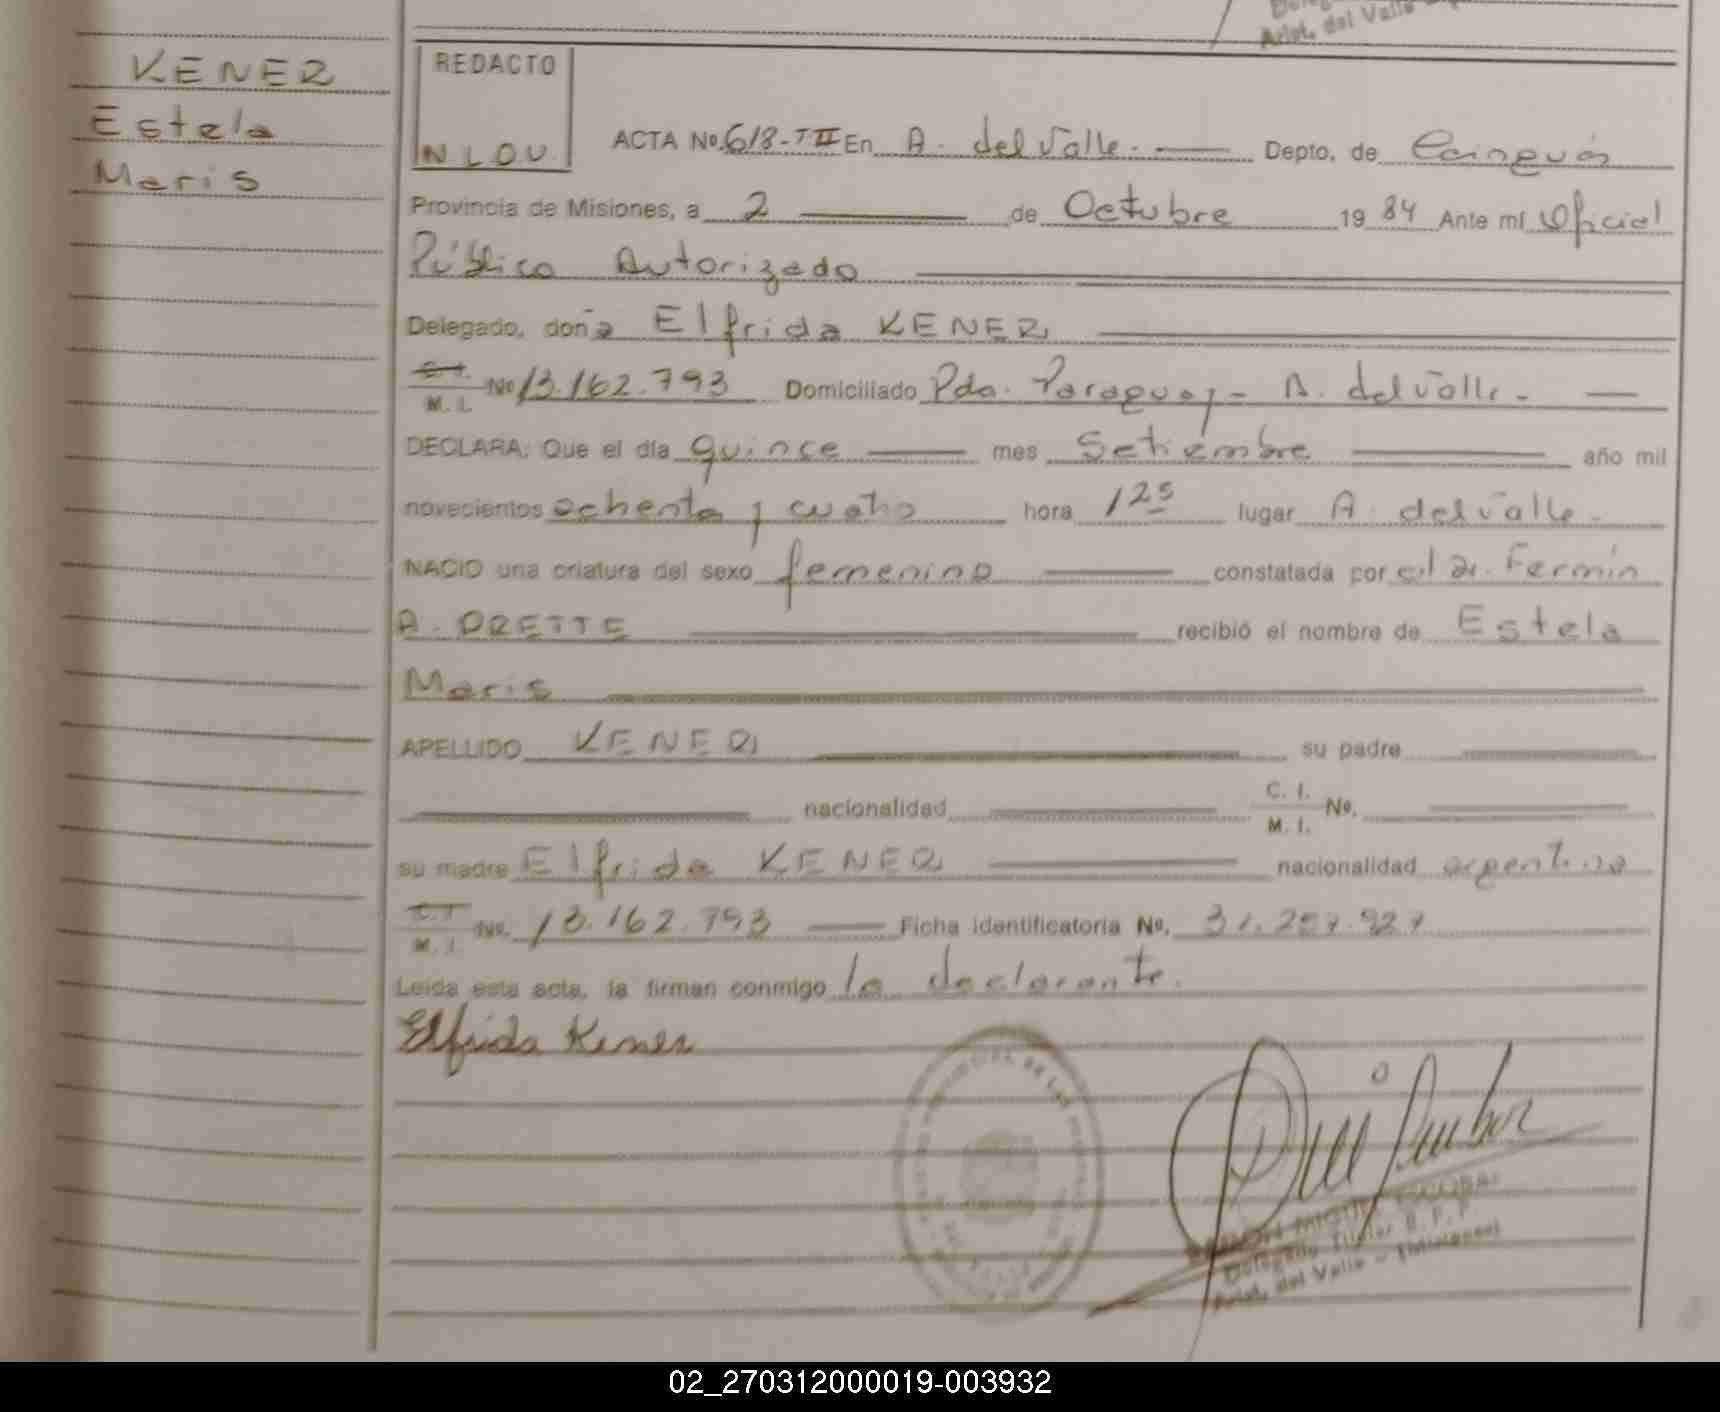 Arist. del Valle
KENER
Estela
Maris
REDACTO
N L O V.
ACTA No. 618-TII En A. del Valle. Depto, de Cainguás
Provincia de Misiones, a 2 de Octubre 19 84 Ante mí Oficial
Público Autorizado
Delegado, doña Elfrida KENER
C. I. M. I. No 13.162.793 Domiciliado Pda. Paraguay - A. del Valle -
DECLARA: Que el día quince mes Setiembre año mil
novecientos ochenta y cuatro hora 1 25 lugar A. del Valle -
NACIO una criatura del sexo femenino constatada por el Dr. Fermín
A. PRETTE recibió el nombre de Estela
Maris
APELLIDO KENER su padre
nacionalidad C. I. M. I. No.
su madre Elfrida KENER nacionalidad argentina
C. I. M. I. No. 13.162.793 Ficha identificatoria No. 31.257.927
Leída esta acta, la firman conmigo la declarante.
Elfrida Kener
Delegado Titular R. P. P.
Arist. del Valle - (Misiones)
02_270312000019-003932